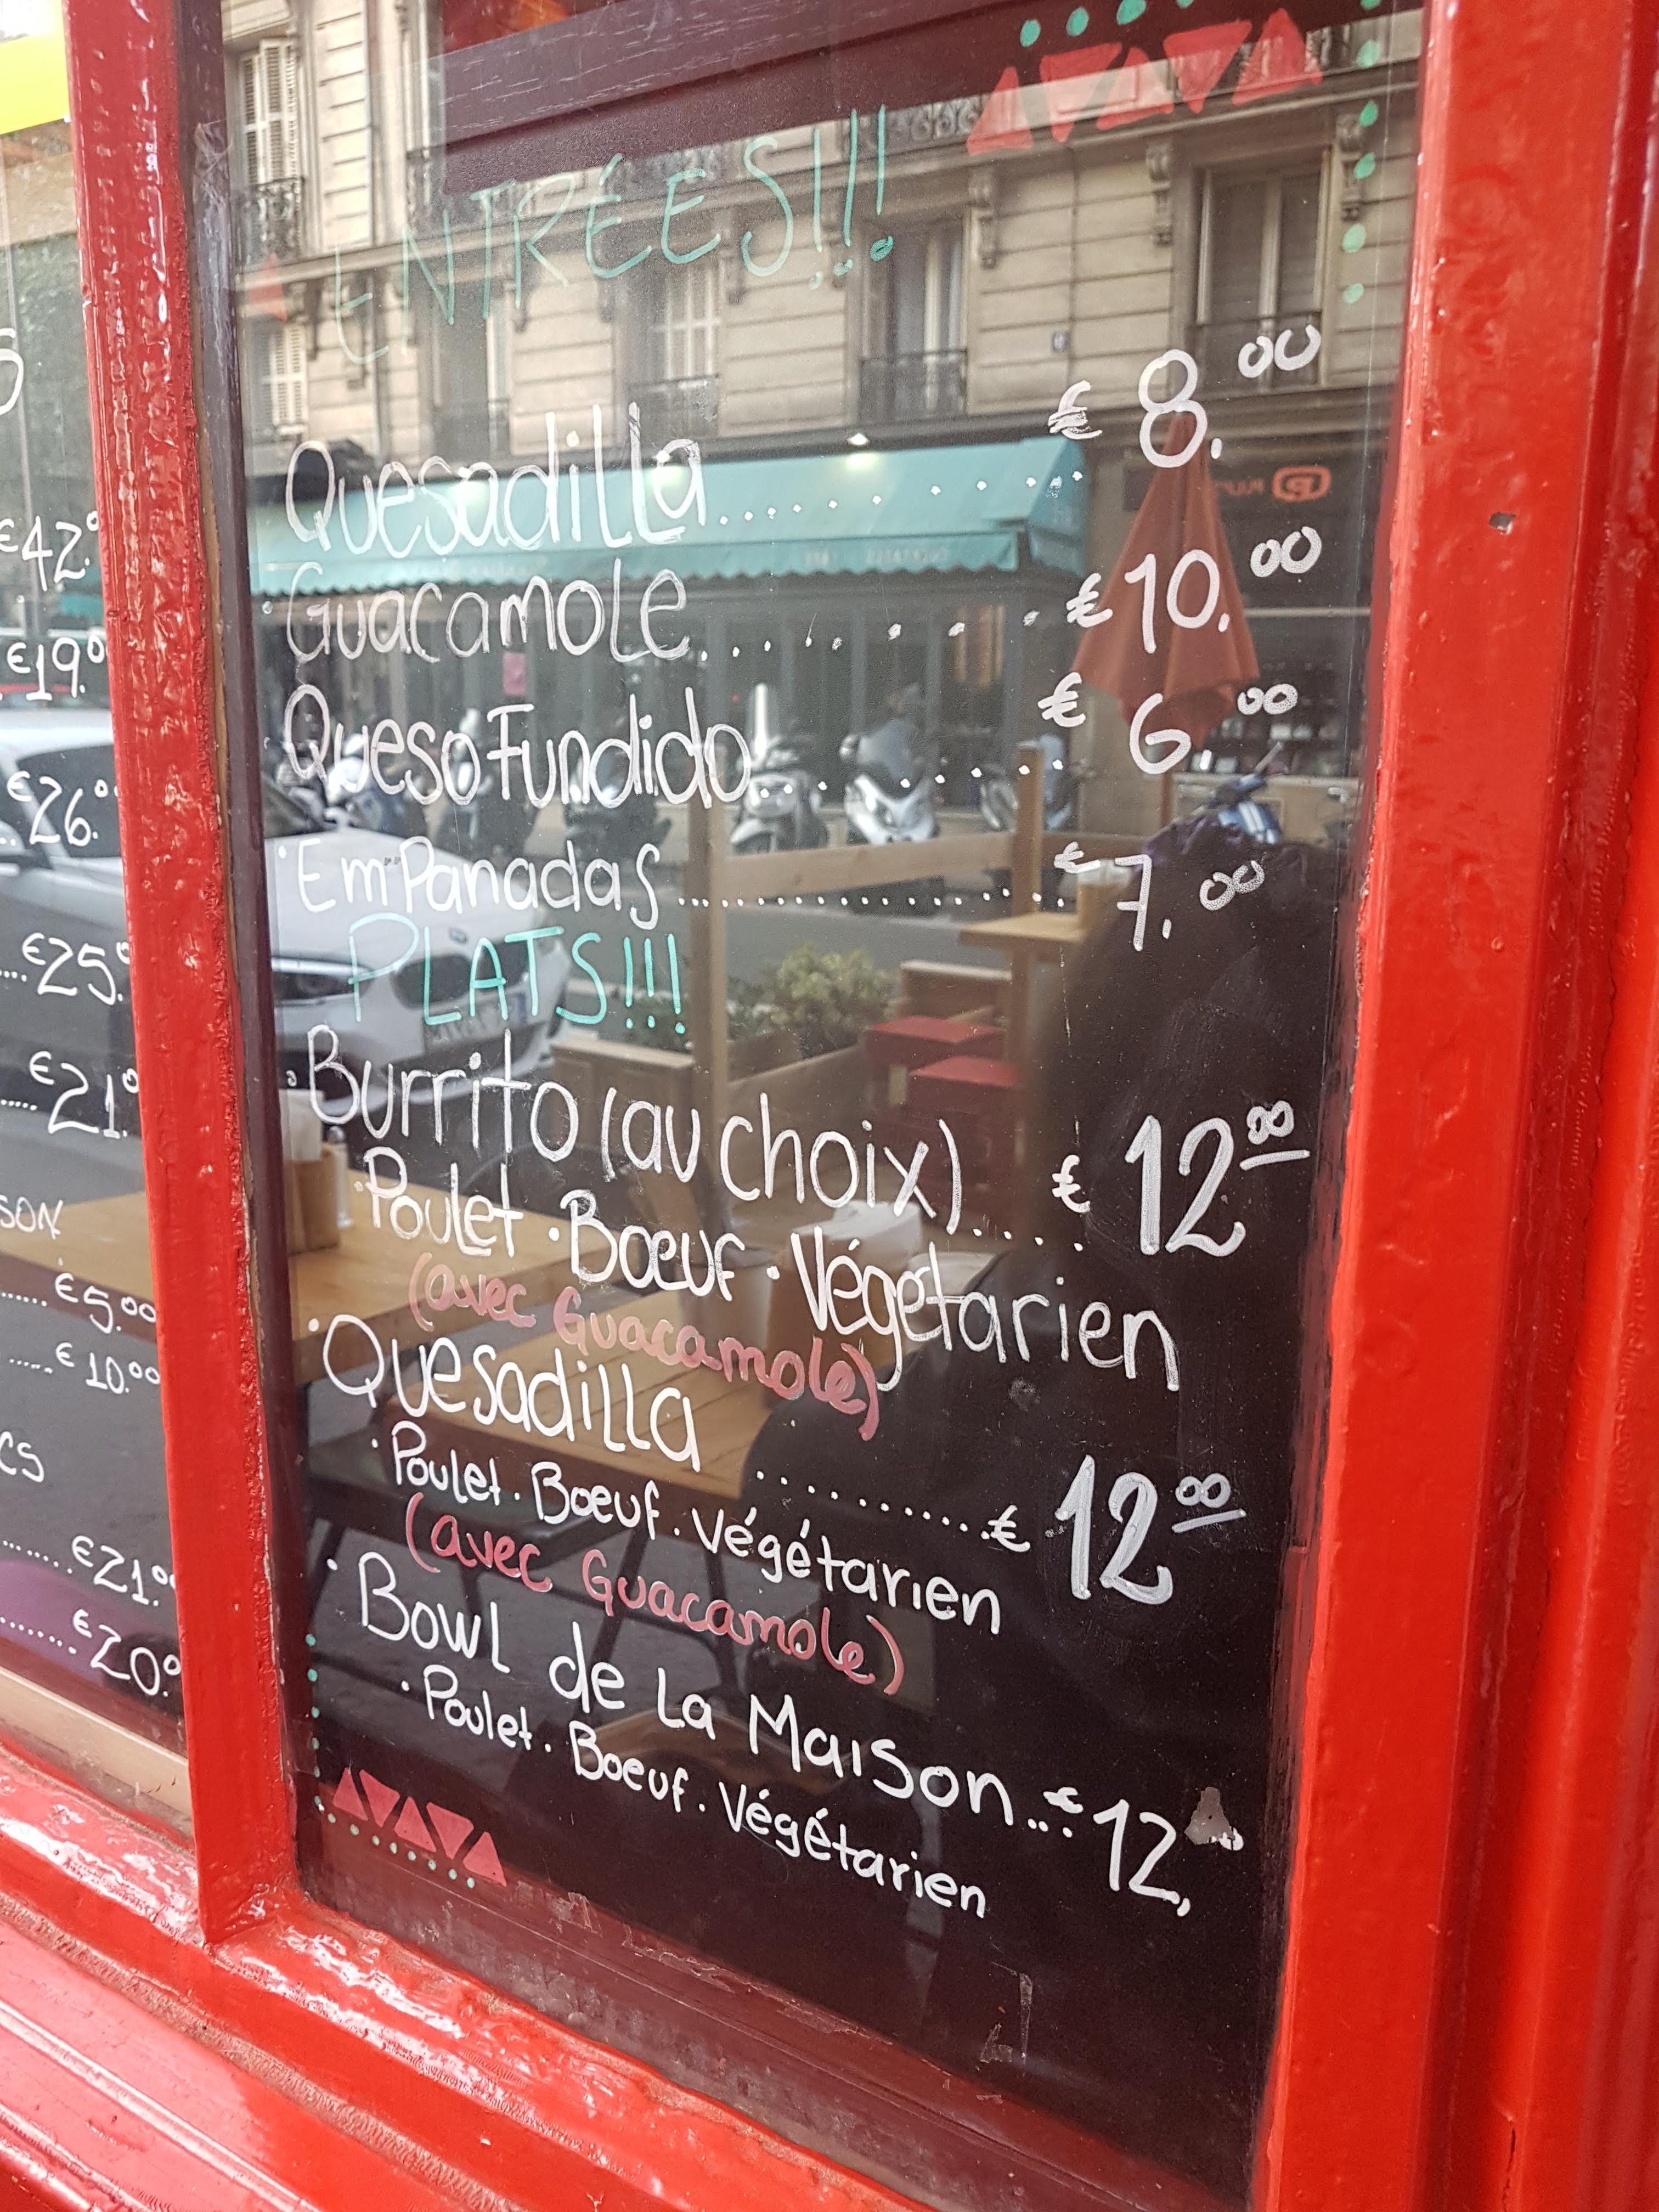 €42.0
€19.0
€26.0
€25.0
€21.0
SON
€5.00
€10.00
CS
€21.00
€20.0
ENTRÉES!!!
Quesadilla........... €8.00
Guacamole......... €10.00
Queso Fundido......... €6.00
Empanadas................ €7.00
PLATS!!!
Burrito (au choix)..... €12.00
Poulet . Boeuf . Végétarien
(avec Guacamole)
Quesadilla .......... €12.00
Poulet . Boeuf . Végétarien
(avec Guacamole)
Bowl de La Maison... €12,
Poulet . Boeuf . Végétarien